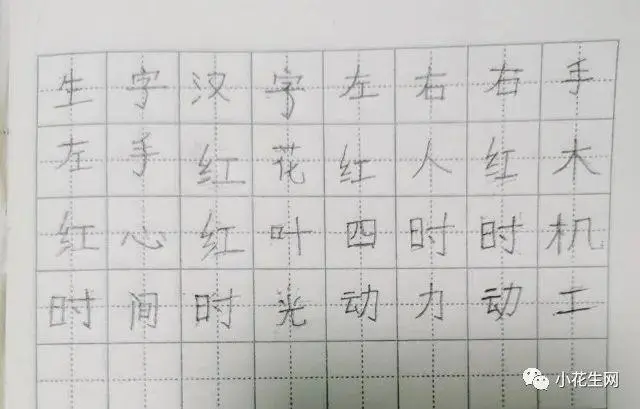 生字汉字左右右手
左手红花红人红木
红心红叶四时时机
时间时光动力动工
小花生网